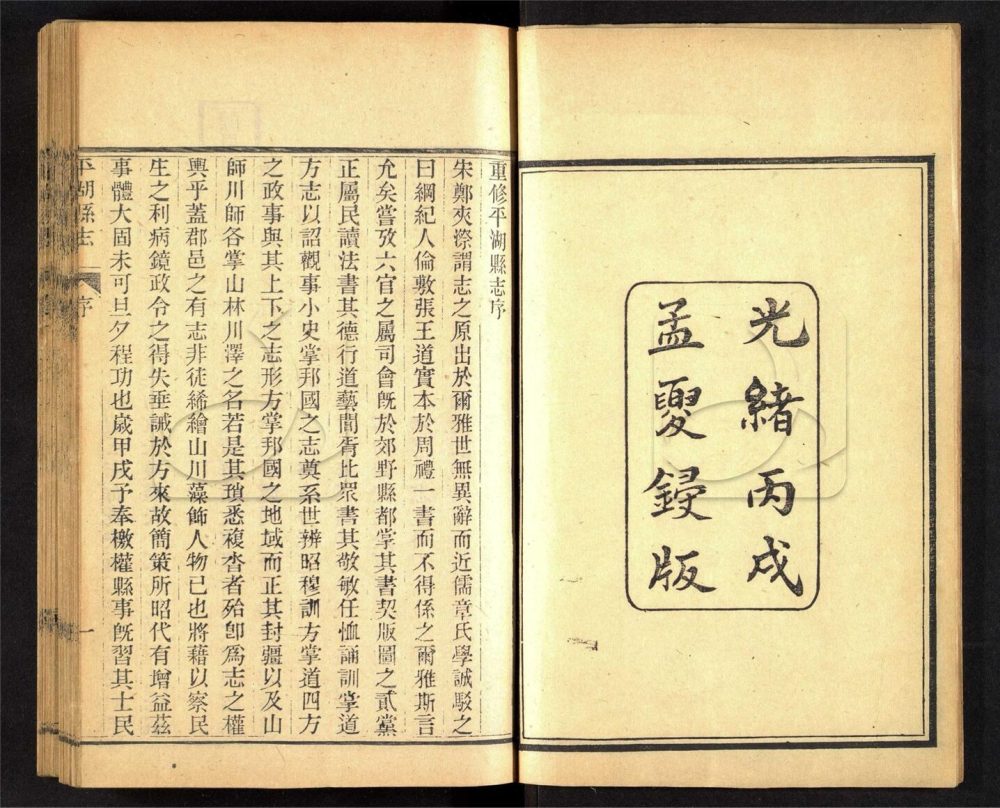 光緒丙戌
孟夏鋟版
重修平湖縣志序
宋鄭夾漈謂志之原出於爾雅世無異辭而近儒章氏學誠駁之
曰綱紀人倫敷張王道實本於周禮一書而不得係之爾雅斯言
允矣嘗攷六官之屬司會旣於郊野縣都掌其書契版圖之貳黨
正屬民讀法書其德行道藝閭胥比眾書其敬敏任恤誦訓掌道
方志以詔觀事小史掌邦國之志奠系世辨昭穆訓方掌道四方
之政事與其上下之志形方掌邦國之地域而正其封疆以及山
師川師各掌山林川澤之名若是其瑣悉複沓者殆卽爲志之權
輿乎蓋郡邑之有志非徒絺繪山川藻飾人物已也將藉以察民
生之利病鏡政令之得失垂誡於方來故簡策所昭代有增益茲
事體大固未可旦夕程功也歲甲戌予奉檄權縣事旣習其士民
平湖縣志
序
一